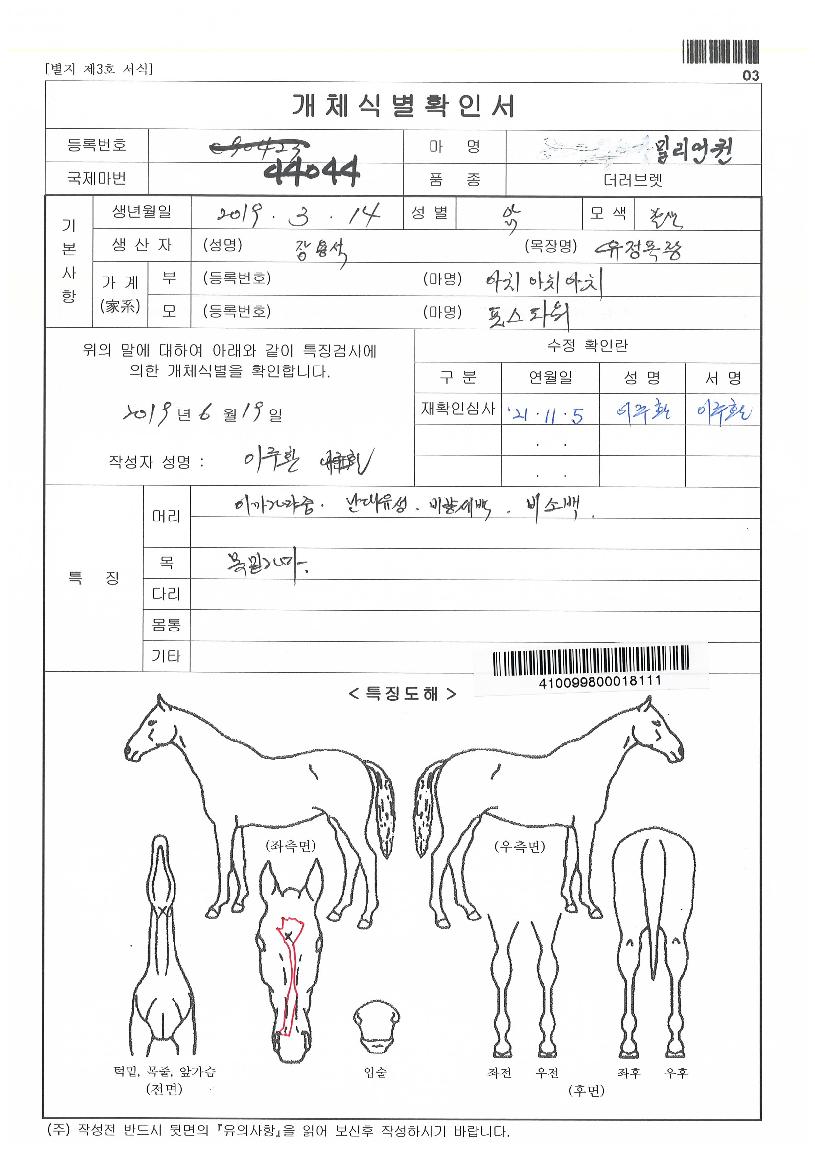 03
[별지 제3호 서식]
개체식별확인서
등록번호 090423 마 명 밀리언퀸
국제마번 44044 품 종 더러브렛
기본사항
생년월일 2019 . 3 . 14 성 별 암 모 색
생 산 자 (성명) 장용석 (목장명) 유정목장
가 계 (家系) 부 (등록번호) (마명) 아치 아치 아치
모 (등록번호) (마명) 포스파워
위의 말에 대하여 아래와 같이 특징검사에
의한 개체식별을 확인합니다.
2019 년 6 월 19 일
작성자 성명 : 이주환
수정 확인란
구 분 연월일 성 명 서 명
재확인심사 '21 . 11 . 5 이주환 이주환
. .
. .
특 징
머리 난대유성 . 비량세백 . 비소백 .
목 목밑가마 .
다리
몸통
기타
410099800018111
< 특징도해 >
(좌측면) (우측면)
턱밑, 목줄, 앞가슴 입술 좌전 우전 좌후 우후
(전면) (후면)
(주) 작성전 반드시 뒷면의 『유의사항』을 읽어 보신후 작성하시기 바랍니다.